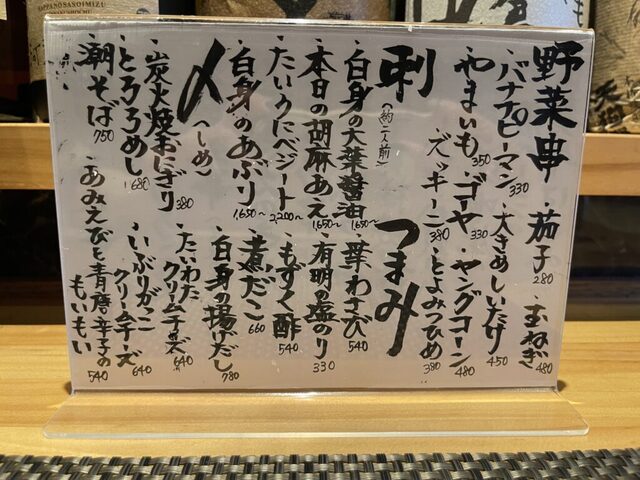 野菜串
茄子 280
・玉ねぎ 480
・バナナピーマン 330
・大きめしいたけ 450
・やまいも 350
・ゴーヤ 330
・ヤングコーン 480
・ズッキーニ 380
・とよみつひめ 380
刺
(約二人前)
・白身の大葉醤油 1,650〜
・本日の胡麻あえ 1,650〜
・たいうにベジート 2,200〜
・白身のあぶり 1,650〜
つまみ
・葉わさび 540
・有明の塩のり 330
・もずく酢 540
・煮だこ 660
・白身の揚げだし 780
・たいわたクリームチーズ 640
・いぶりがっこクリームチーズ 640
・あみえびと青唐辛子のもいもい 540
〆(しめ)
・炭火焼おにぎり 380
・とろろめし 680
・潮そば 750